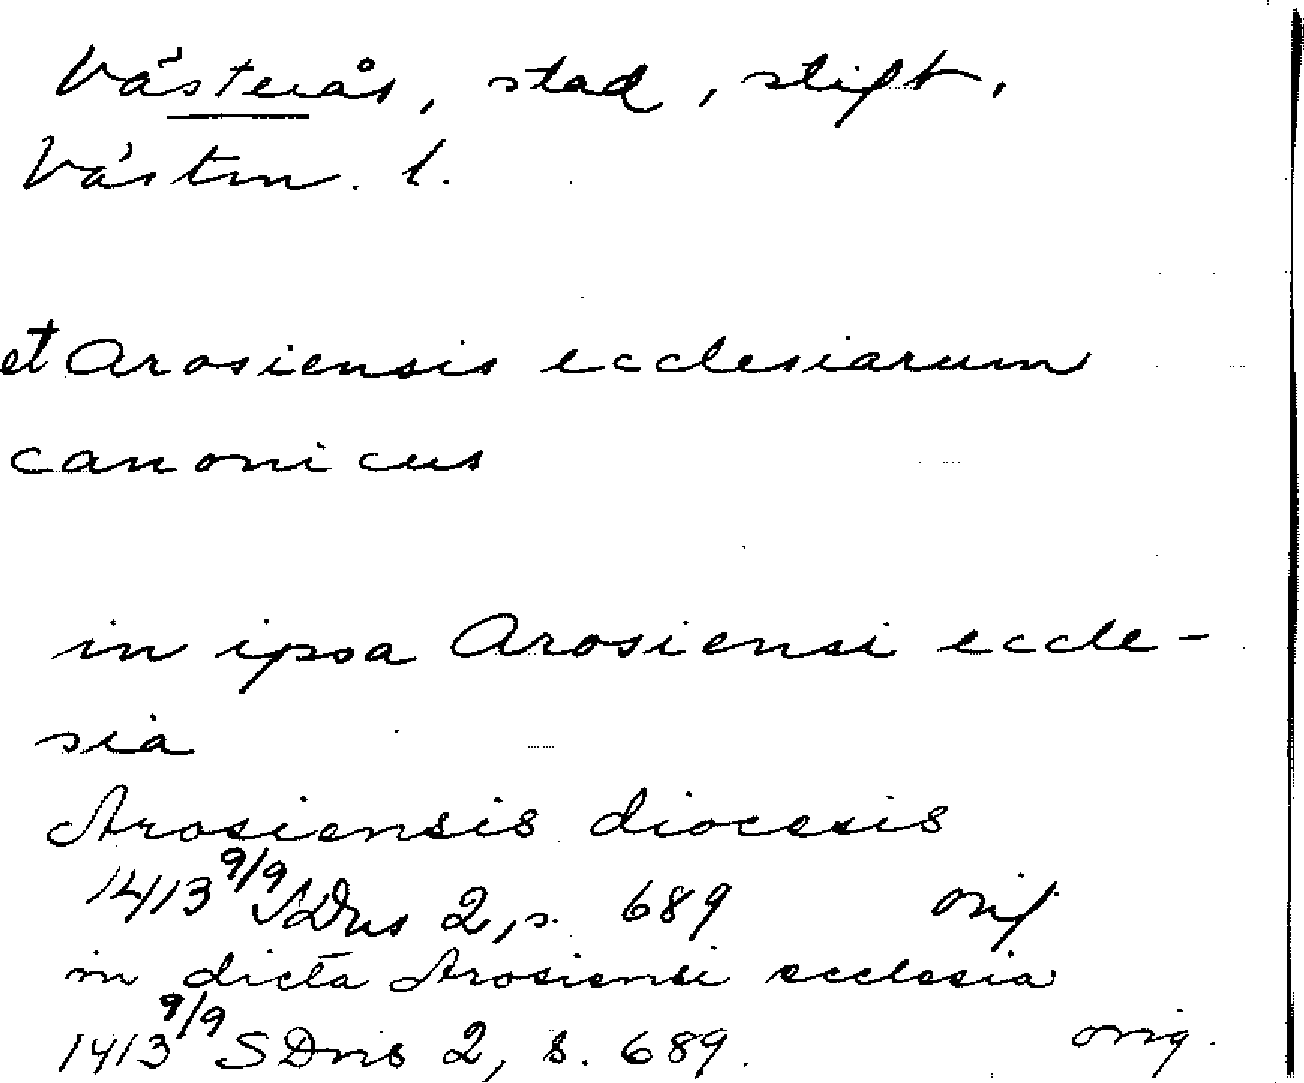 Västerås, stad, stift,
Västm. l.
et Arosiensis ecclesiarum
canonicus
in ipsa Arosiensi eccle-
sia
Arosiensis diocesis
1413 9/9 SDns 2, s. 689 orig
in dicta Arosiensi ecclesia
1413 9/9 SDns 2, s. 689. orig.